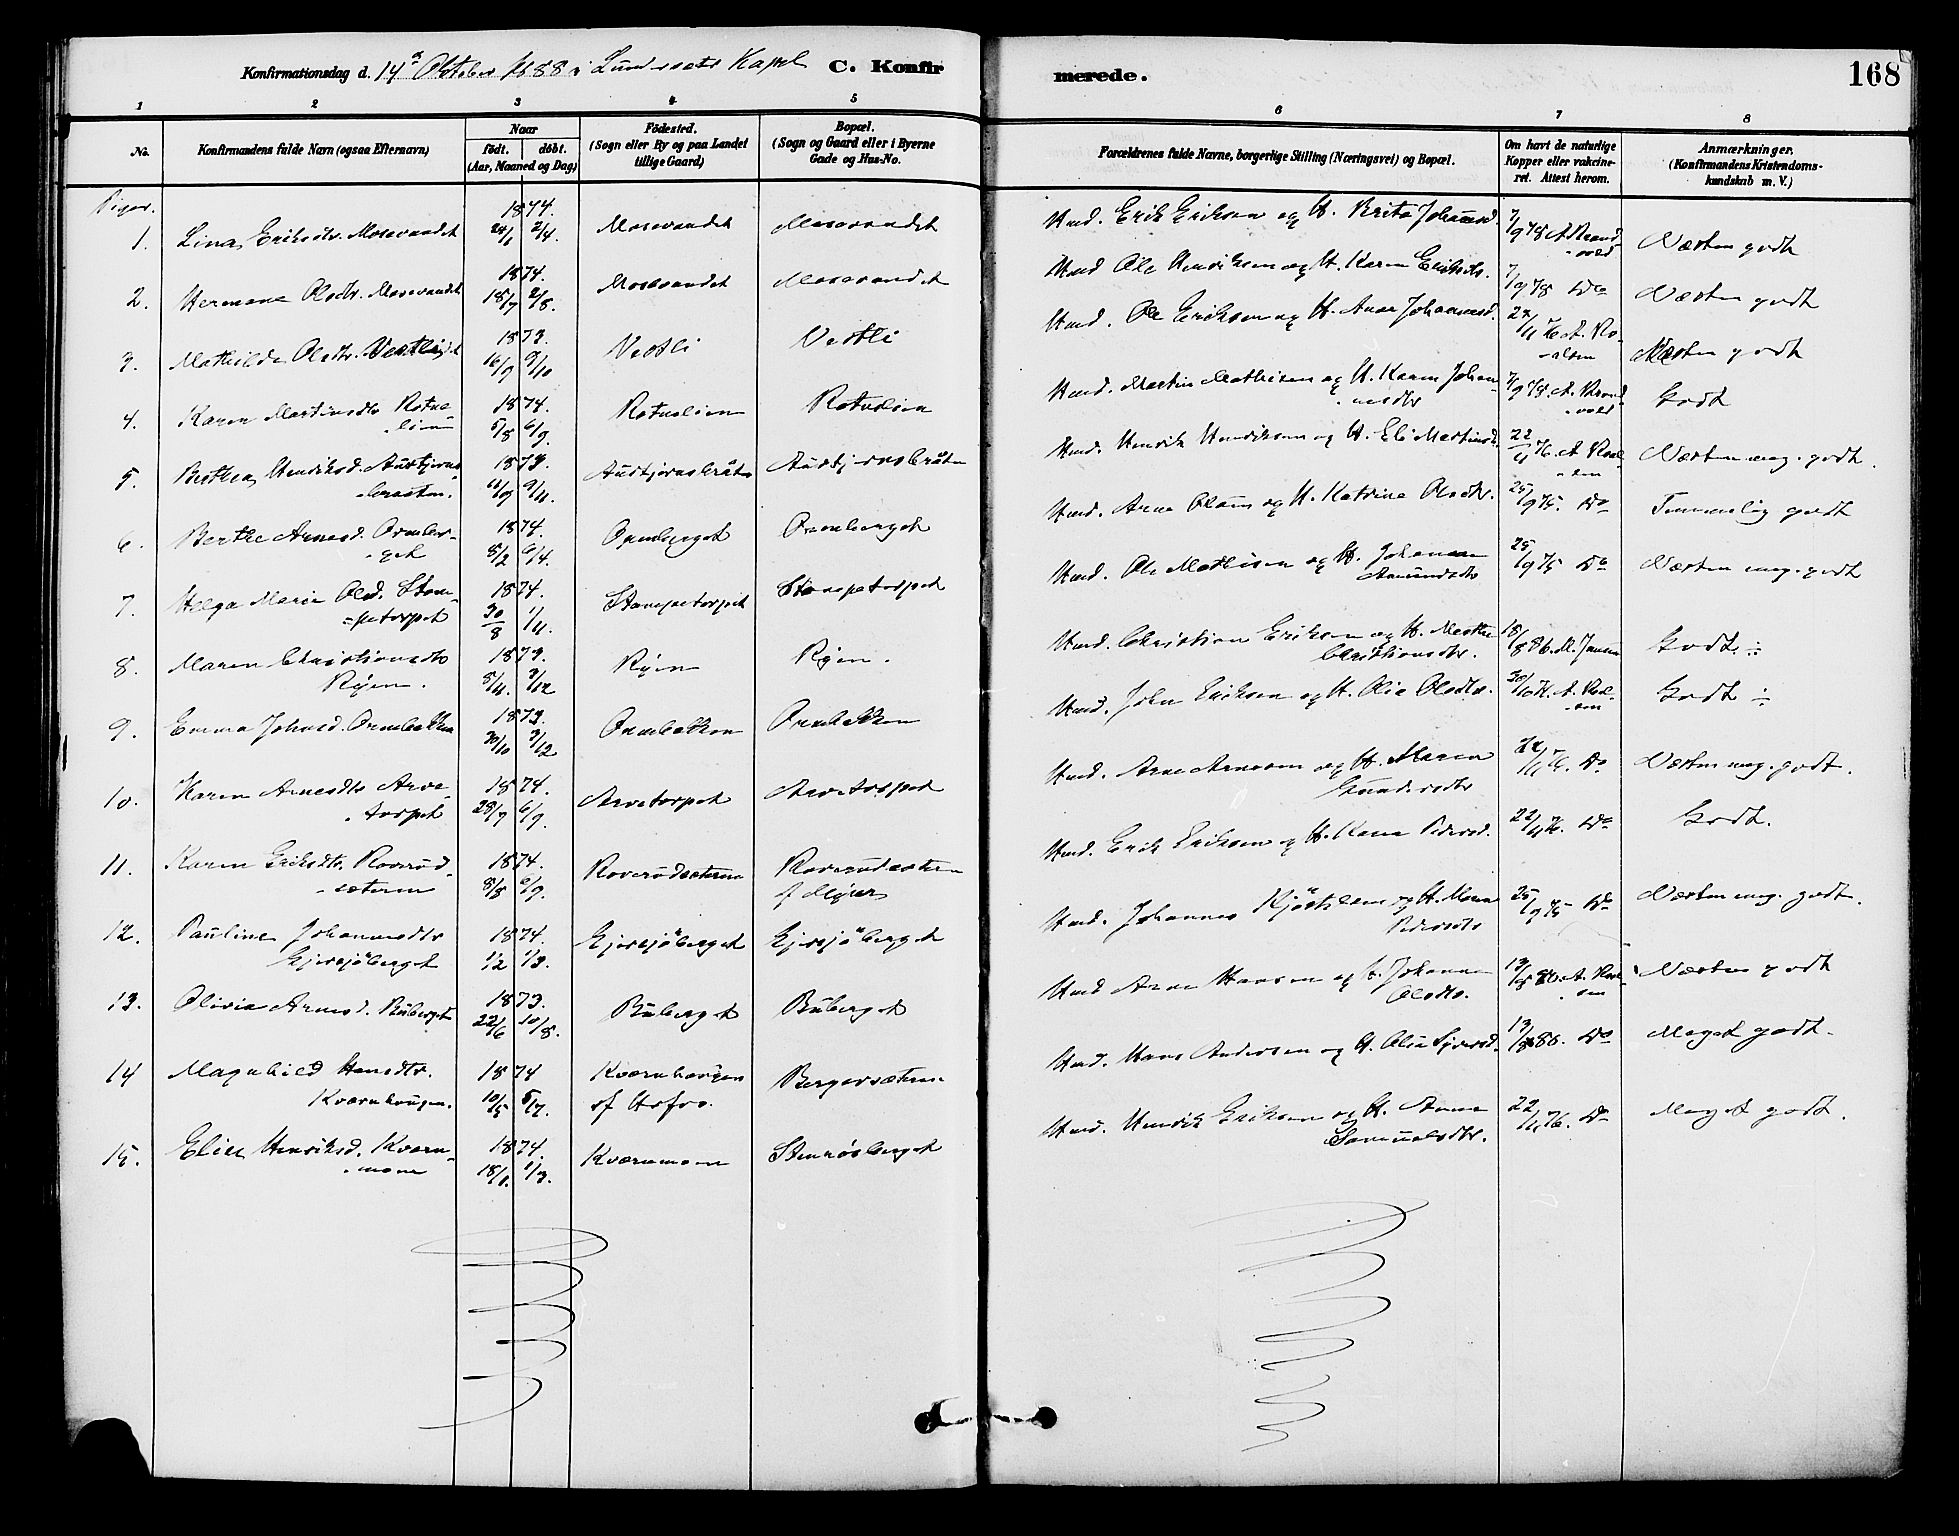 Konfirmationsdag d. 14de Oktober 1888 i Lundersæter Kapel C. Konfir
merede. 168
1 2 3 4 5 6 7 8
No.
Konfirmandens fulde Navn (ogsaa Efternavn)
Naar
födt. döbt.
(Aar, Maaned og Dag)
Födested.
(Sogn eller By og paa Landet
tillige Gaard)
Bopæl.
(Sogn og Gaard eller i Byerne
Gade og Hus-No.
Forældrenes fulde Navne, borgerlige Stilling (Næringsvei) og Bopæl.
Om havt de naturlige
Kopper eller vakcine-
ret. Attest herom.
Anmærkninger.
(Konfirmandens Kristendoms-
kundskab m. V.)
Piger.
1. Lina Eriksdtr. Mosevandet 1874. 2/4. Mosevandet Mosevandet Hmd. Erik Eriksen og H. Brita Johannesd. 7/9 78 A. Strand-
vold Næsten godt
2. Hermana Olsdtr. Mosevandet 1874. 18/7 2/8. Mosevandet Mosevandet Hmd Ole Henriksen og H. Karen Eriksdtr. 7/9 78 Do Næsten godt
3. Mathilde Olsdtr. Vestli 1873. 16/9 9/10 Vestli Vestli Hmd. Ole Eriksen og H. Anne Johannesd. 22/11 76 A. Ro-
alsen Næsten godt
4. Karen Martinsdtr Rotne-
lien 1874. 5/8 6/9. Rotnelien Rotnelien Hmd. Martin Mathisen og H. Karen Johan-
nesdtr 7/9 78 A. Strand-
vold Godt
5. Berthea Henriksd. Austjerns-
braaten. 1873. 9/11. Austjernsbråten Austjernsbråten Hmd. Henrik Henriksen og H. Eli Martinsd. 22/11 76. A. Roal-
sen Næsten meg. godt.
6. Berthe Arnesd. Ormber-
get 1874. 8/2 6/4. Ormberget Ormberget Hmd. Arne Olsen og H. Katrine Olsdtr. 25/9 75. Do Temmelig godt
7. Helga Marie Olsd. Stam-
petorpet 1874. 30/8 1/11. Stampetorpet Stampetorpet Hmd. Ole Mathisen og H. Johanne
Amundsdtr 25/9 75 Do Næsten meg. godt
8. Maren Christiansdtr
Ryen. 1873. 5/11. 3/12 Ryen Ryen. Hmd. Christian Eriksen og H. Marthe
Christiansdtr. 18/8 86. M. Jensen Godt. ÷
9. Emma Johnsd. Ormbakken 1873. 30/10 3/12 Ormbakken Ormbakken Hmd. John Eriksen og H. Olia Olsdtr. A. Roal-
sen Godt ÷
10. Karen Arnesdtr Arve-
torpet 1874. 28/7 6/9. Arvetorpet Arvetorpet Hmd. Arne Arnesen og H. Maren
Gundersdtr 22/11 76. Do Næsten meg. godt.
11. Karen Eriksdtr. Roverud-
sæteren 1874. 8/8 6/9. Roverudsæteren Roverudsæteren
Hmd. Erik Eriksen og H. Kari Pedersd. 22/11 76. Do Godt.
12. Pauline Johannesdtr
Gjersjöberget 1874. 1/2 1/3. Gjersjöberget Gjersjöberget Hmd. Johannes og H. Maren
Pedersdtr 25/9 75 Do Næsten meg. godt.
13. Olivia Arnesd. Buberget 1873. 22/6 10/8. Buberget Buberget Hmd Arne Hansen og H. Johanne
Olsdtr. 13/8 86. A. Roal-
sen Næsten godt
14 Magnhild Hansdtr.
Kværnhaugen. 1874 10/5 5/7. Kværnhaugen
af Hofvo. Bergersæteren Hmd. Hans Andersen og H. Olia Syversd. 13/8 86. Do Meget godt.
15. Elise Henriksd. Kværn-
moen 1874. 18/1. 1/3. Kværnmoen Stenrösberget Hmd. Henrik Eriksen og H. Anne
Samuelsdtr. 22/11 76. Do Meget godt.